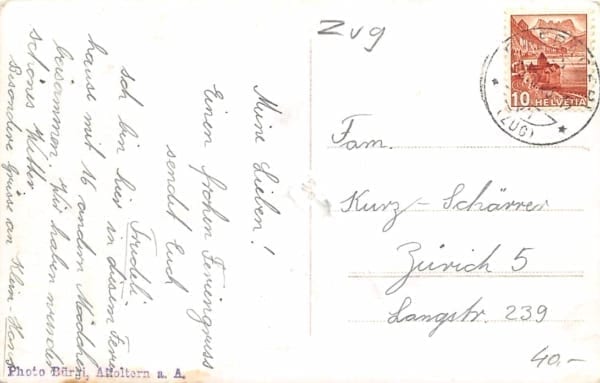 Zug
10 HELVETIA
(ZUG)
Meine Lieben!
Einen frohen Feriengruss
sendet Euch
Trudeli
Ich bin hier in diesem Ferien
hause mit 16 andern Mädchen
beisammen. Wir haben wunder
schönes Wetter
Besondere Grüsse an Klein-Hans
Fam.
Kurz-Schärrer
Zürich 5
Langstr. 239
40.-
Photo Bürgi, Affoltern a. A.